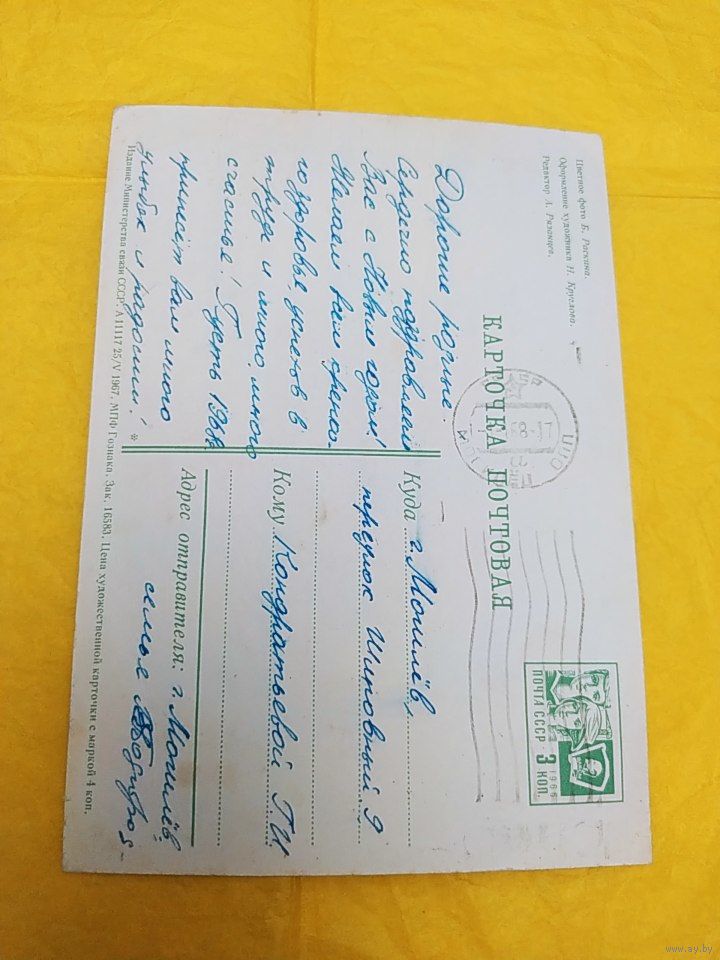 Цветное фото Б. Раскина.
Оформление художника Н. Круглова.
Редактор А. Рязанцев.
КАРТОЧКА ПОЧТОВАЯ
ПОЧТА СССР
1966
3 КОП.
Дорогие родные.
Сердечно поздравляем
Вас с Новым годом!
Желаем всем крепко
го здоровья, успехов в
труде и много, много
счастья! Пусть 1968
принесёт вам много
улыбок и радости!
Куда г. Могилёв
переулок 9
Кому Кондратьевой Г. И
Адрес отправителя: г. Могилёв
семья
Издание Министерства связи СССР. А 11117 25/V 1967. МПФ Гознака. Зак. 16583. Цена художественной карточки с маркой 4 коп.
www.ay.by